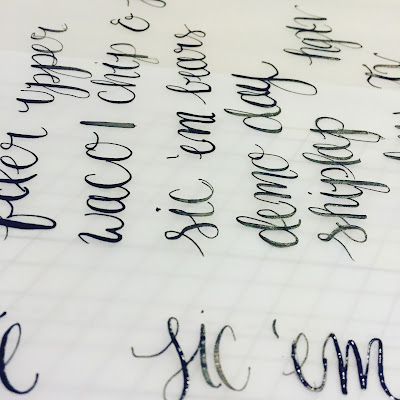 fixer upper
waco | chip &
sic 'em bears
demo day
shiplap hgtv
sic 'em